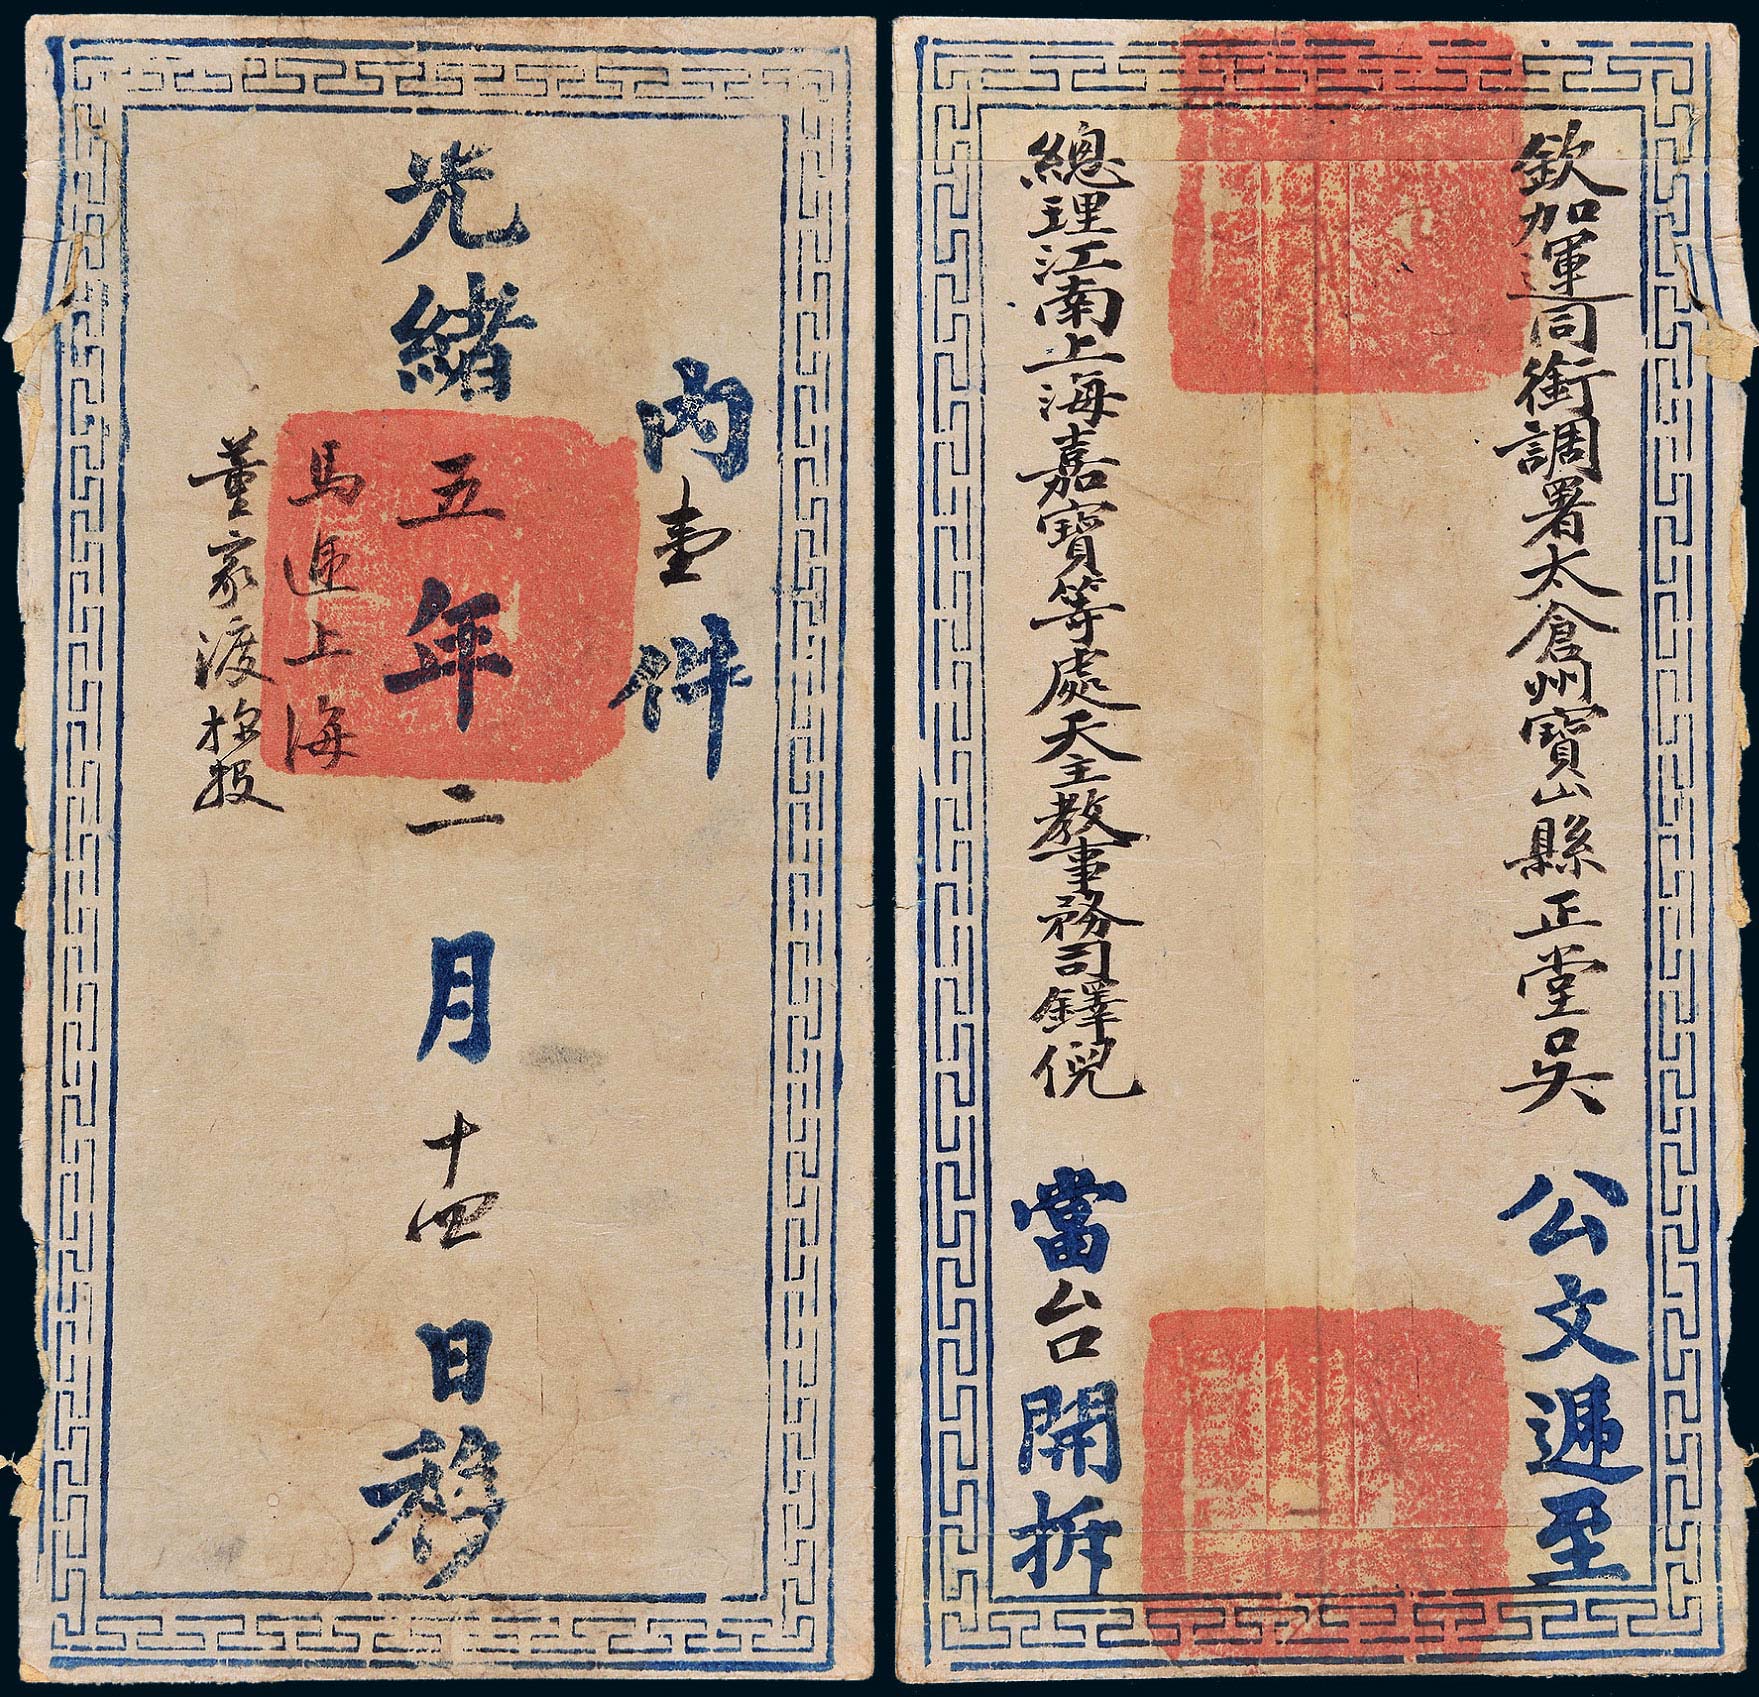 內壹件
光緒五年二月十四日移
馬遞上海
董家渡投
欽加運同銜調署太倉州寶山縣正堂吳公文遞至
總理江南上海嘉寶等處天主教事務司鐸倪當台開拆